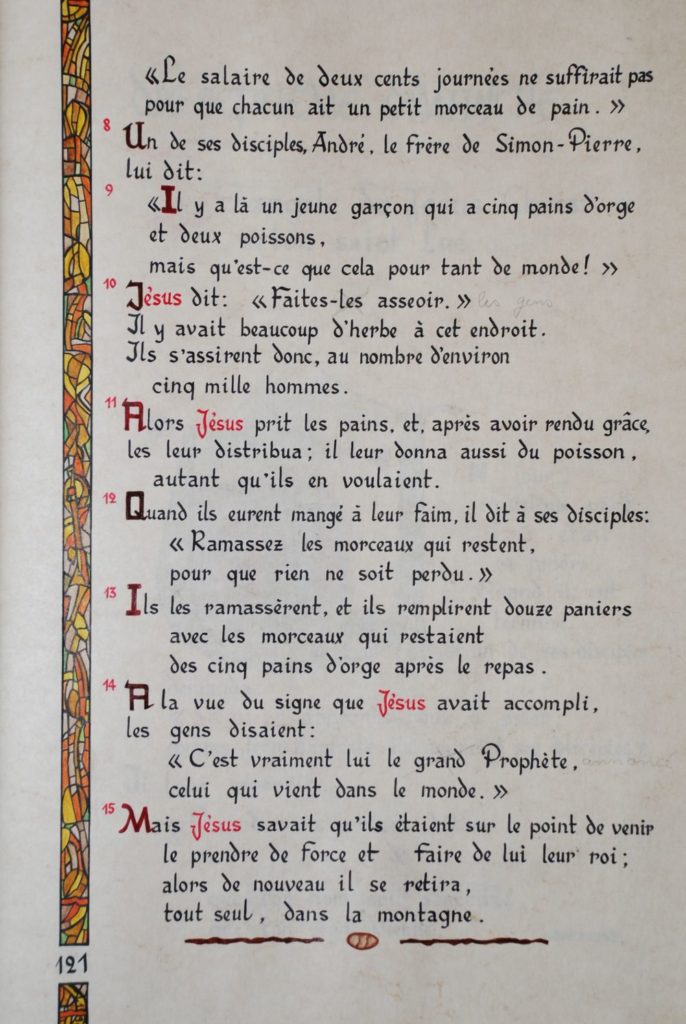 «Le salaire de deux cents journées ne suffirait pas
pour que chacun ait un petit morceau de pain. »
8 Un de ses disciples, André, le frère de Simon-Pierre,
lui dit:
9 «Il y a là un jeune garçon qui a cinq pains d'orge
et deux poissons,
mais qu'est-ce que cela pour tant de monde! »
10 Jésus dit: «Faites-les asseoir.» les gens
Il y avait beaucoup d'herbe à cet endroit.
Ils s'assirent donc, au nombre d'environ
cinq mille hommes.
11 Alors Jésus prit les pains, et, après avoir rendu grâce,
les leur distribua; il leur donna aussi du poisson,
autant qu'ils en voulaient.
12 Quand ils eurent mangé à leur faim, il dit à ses disciples:
« Ramassez les morceaux qui restent,
pour que rien ne soit perdu.»
13 Ils les ramassèrent, et ils remplirent douze paniers
avec les morceaux qui restaient
des cinq pains d'orge après le repas.
14 A la vue du signe que Jésus avait accompli,
les gens disaient:
« C'est vraiment lui le grand Prophète,
celui qui vient dans le monde.»
15 Mais Jésus savait qu'ils étaient sur le point de venir
le prendre de force et faire de lui leur roi;
alors de nouveau il se retira,
tout seul, dans la montagne.
121